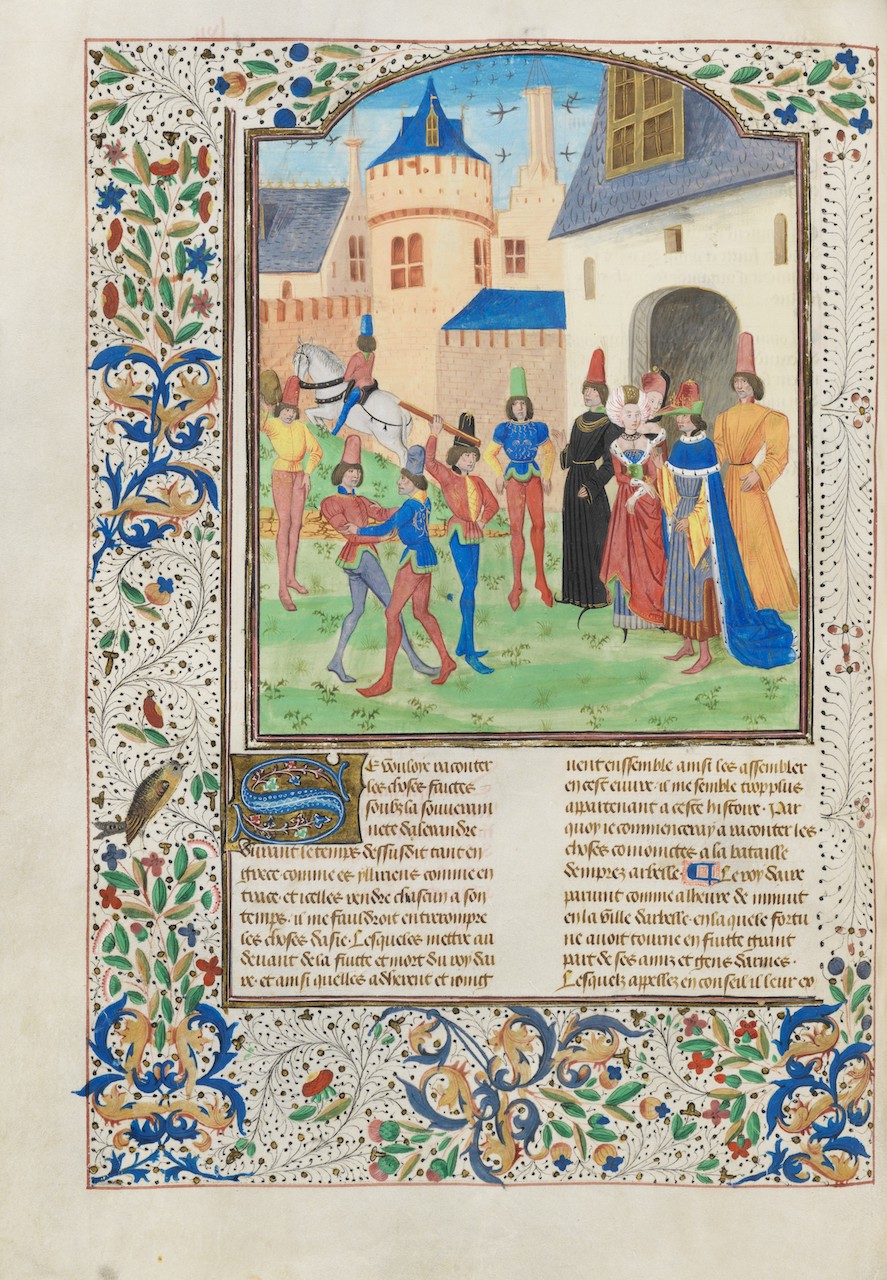 Se vouloye raconter
les choses faictes
soubz la souverain
nete dalexandre
Durant le temps dessusdit tant en
grece comme es ylliriens comme en
trace. et icelles rendre chascun a son
temps. il me fauldroit entrerompre
les choses dasie. Lesqueles mettre au
devant de la fuitte et mort du roy dai
re. et ainsi quelles adherent et ioing
nent enssemble ainsi les assembler
en cest euvre. il me semble trop plus
appartenant a ceste histoire. Par
quoy ie commenceray a raconter les
choses coniointes a la bataille
demprez arbelle. Le roy daire
parvint comme a leure de minuit
en la ville darbelle. en laquele fortu
ne avoit tourne en fuitte grant
part de ses amiz et gens darmes.
Lesquelz appellez en conseil il leur ex